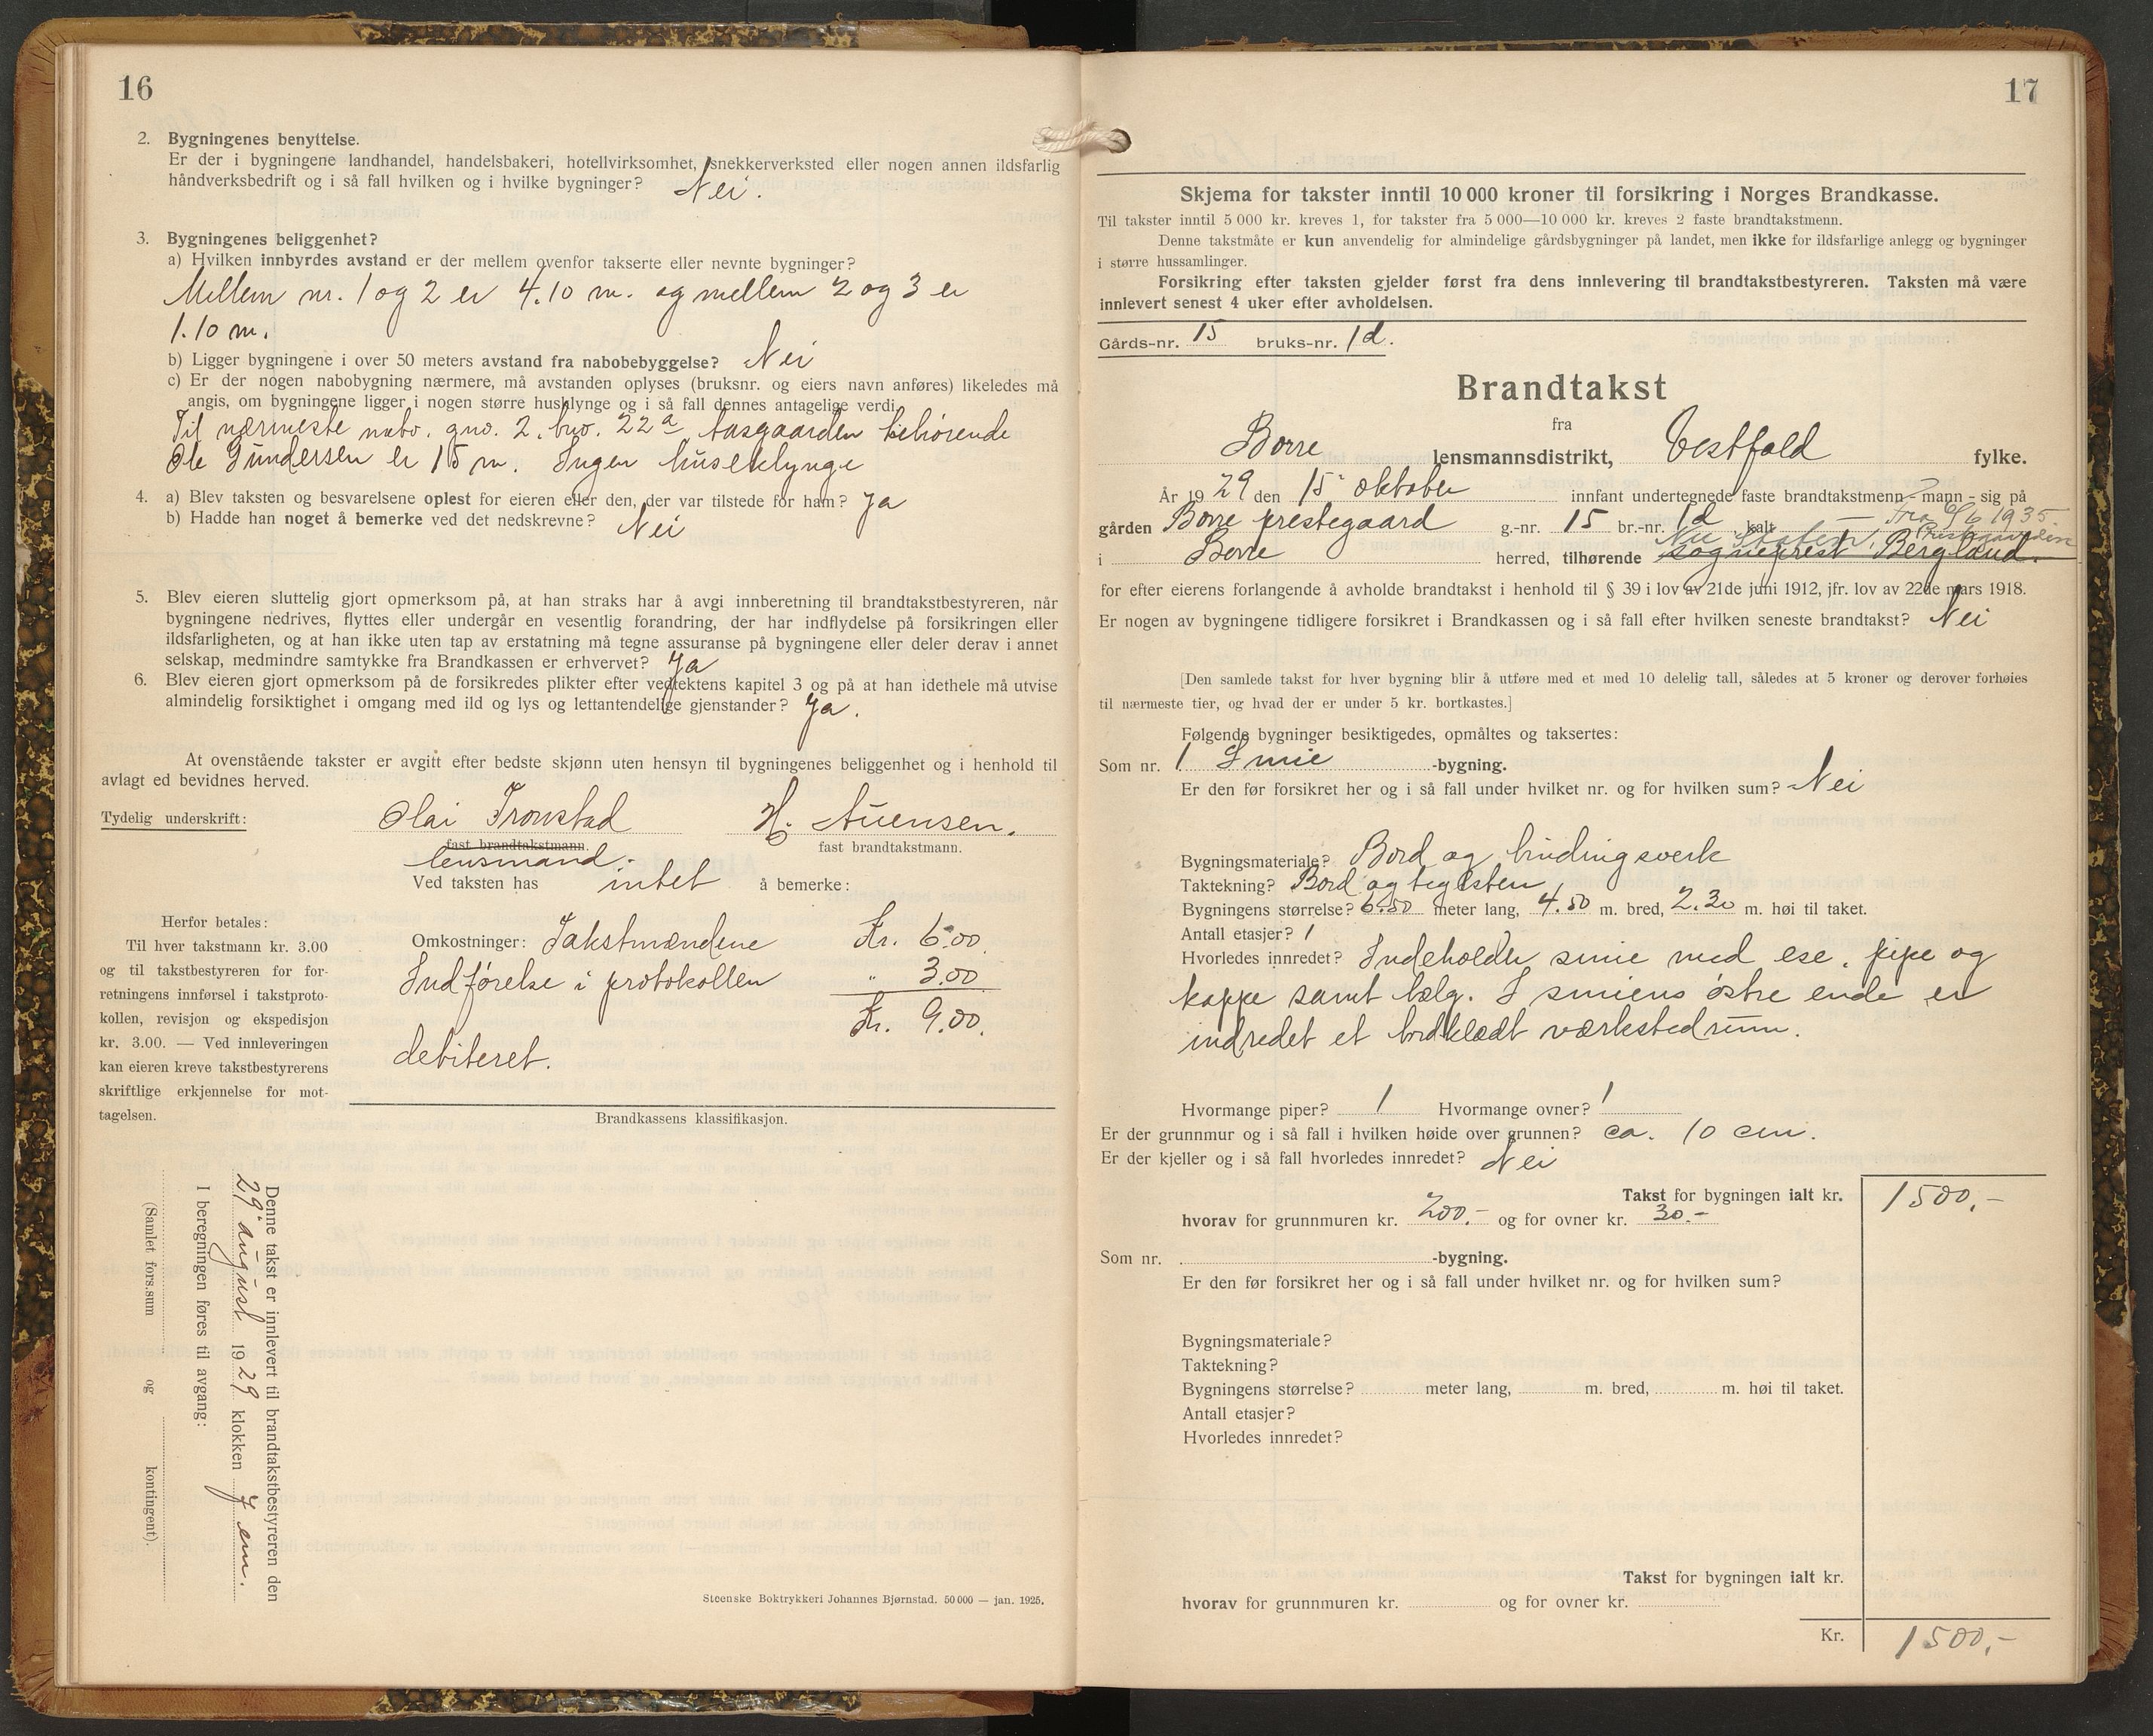 16
2. Bygningenes benyttelse.
Er der i bygningene landhandel, handelsbakeri, hotellvirksomhet, snekkerverksted eller nogen annen ildsfarlig
håndverksbedrift og i så fall hvilken og i hvilke bygninger? Nei.
3. Bygningenes beliggenhet?
a) Hvilken innbyrdes avstand er der mellem ovenfor takserte eller nevnte bygninger?
Mellem nr. 1 og 2 er 4.10 m. og mellem 2 og 3 er
1.10 m.
b) Ligger bygningene i over 50 meters avstand fra nabobebyggelse? Nei
c) Er der nogen nabobygning nærmere, må avstanden oplyses (bruksnr. og eiers navn anføres) likeledes må
angis, om bygningene ligger i nogen større husklynge og i så fall dennes antagelige verdi.
Til nærmeste nabo. gno. 2, bno. 22a Aasgaarden tilhørende
Ole Gundersen er 15 m. Ingen huseklynge
4. a) Blev taksten og besvarelsene oplest for eieren eller den, der var tilstede for ham? Ja
b) Hadde han noget å bemerke ved det nedskrevne? Nei
5. Blev eieren sluttelig gjort opmerksom på, at han straks har å avgi innberetning til brandtakstbestyreren, når
bygningene nedrives, flyttes eller undergår en vesentlig forandring, der har indflydelse på forsikringen eller
ildsfarligheten, og at han ikke uten tap av erstatning må tegne assuranse på bygningene eller deler derav i annet
selskap, medmindre samtykke fra Brandkassen er erhvervet? Ja
6. Blev eieren gjort opmerksom på de forsikredes plikter efter vedtektens kapitel 3 og på at han idethele må utvise
almindelig forsiktighet i omgang med ild og lys og lettantendelige gjenstander? Ja.
At ovenstående takster er avgitt efter bedste skjønn uten hensyn til bygningenes beliggenhet og i henhold til
avlagt ed bevidnes herved.
Tydelig underskrift: Olai Tronstad H. Auensen.
fast brandtakstmann. fast brandtakstmann.
lensmand.
Ved taksten has intet å bemerke:
Herfor betales:
Til hver takstmann kr. 3.00
og til takstbestyreren for for-
retningens innførsel i takstproto-
kollen, revisjon og ekspedisjon
kr. 3.00. — Ved innleveringen
kan eieren kreve takstbestyrerens
skriftlige erkjennelse for mot-
tagelsen.
Omkostninger: Takstmændene Kr. 6.00.
Indførelse i protokollen " 3.00
Kr. 9.00.
debiteret.
Brandkassens klassifikasjon.
Denne takst er innlevert til brandtakstbestyreren den
29' august 1929 klokken 7 em.
I beregningen føres til avgang:
(Samlet fors.sum og kontingent).
Steenske Boktrykkeri Johannes Bjørnstad. 50 000 — jan. 1925.
17
Skjema for takster inntil 10 000 kroner til forsikring i Norges Brandkasse.
Til takster inntil 5 000 kr. kreves 1, for takster fra 5 000—10 000 kr. kreves 2 faste brandtakstmenn.
Denne takstmåte er kun anvendelig for almindelige gårdsbygninger på landet, men ikke for ildsfarlige anlegg og bygninger
i større hussamlinger.
Forsikring efter taksten gjelder først fra dens innlevering til brandtakstbestyreren. Taksten må være
innlevert senest 4 uker efter avholdelsen.
Gårds-nr. 15 bruks-nr. 1d.
Brandtakst
fra
Borre lensmannsdistrikt, Vestfold fylke.
År 1929 den 15' oktober innfant undertegnede faste brandtakstmenn - mann - sig på
gården Borre prestegaard g.-nr. 15 br.-nr. 1d kalt —
Fra 9/6 1935
Nu Staten,
i Borre herred, tilhørende sogneprest Bergland.
for efter eierens forlangende å avholde brandtakst i henhold til § 39 i lov av 21de juni 1912, jfr. lov av 22de mars 1918.
Er nogen av bygningene tidligere forsikret i Brandkassen og i så fall efter hvilken seneste brandtakst? Nei
[Den samlede takst for hver bygning blir å utføre med et med 10 delelig tall, således at 5 kroner og derover forhøies
til nærmeste tier, og hvad der er under 5 kr. bortkastes.]
Følgende bygninger besiktigedes, opmåltes og taksertes:
Som nr. 1 Smie -bygning.
Er den før forsikret her og i så fall under hvilket nr. og for hvilken sum? Nei
Bygningsmateriale? Bord og bindingsverk
Taktekning? Bord og teglsten
Bygningens størrelse? 6.50 meter lang, 4.50 m. bred, 2.30 m. høi til taket.
Antall etasjer? 1
Hvorledes innredet? Indeholder smie med ese, pipe og
kappe samt bælg. I smiens østre ende er
indredet et bordklædt værkstedrum.
Hvormange piper? 1 Hvormange ovner? 1
Er der grunnmur og i så fall i hvilken høide over grunnen? ca. 10 cm.
Er der kjeller og i så fall hvorledes innredet? Nei
Takst for bygningen ialt kr. 1500,-
hvorav for grunnmuren kr. 200.- og for ovner kr. 30.-
Som nr. -bygning.
Er den før forsikret her og i så fall under hvilket nr. og for hvilken sum?
Bygningsmateriale?
Taktekning?
Bygningens størrelse? meter lang, m. bred, m. høi til taket.
Antall etasjer?
Hvorledes innredet?
Takst for bygningen ialt kr.
hvorav for grunnmuren kr. og for ovner kr.
Kr. 1500,-